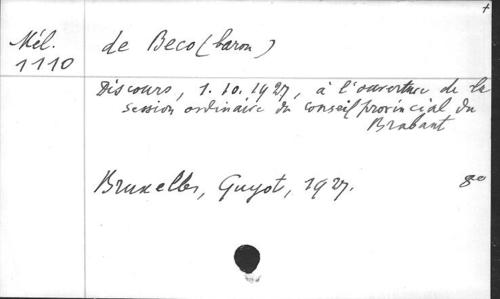 +
Mél.
1110
de Beco (baron)
Discours, 1.10.1927, à l'ouverture de la
session ordinaire du Conseil provincial du
Brabant
Bruxelles, Guyot, 1927.
8o